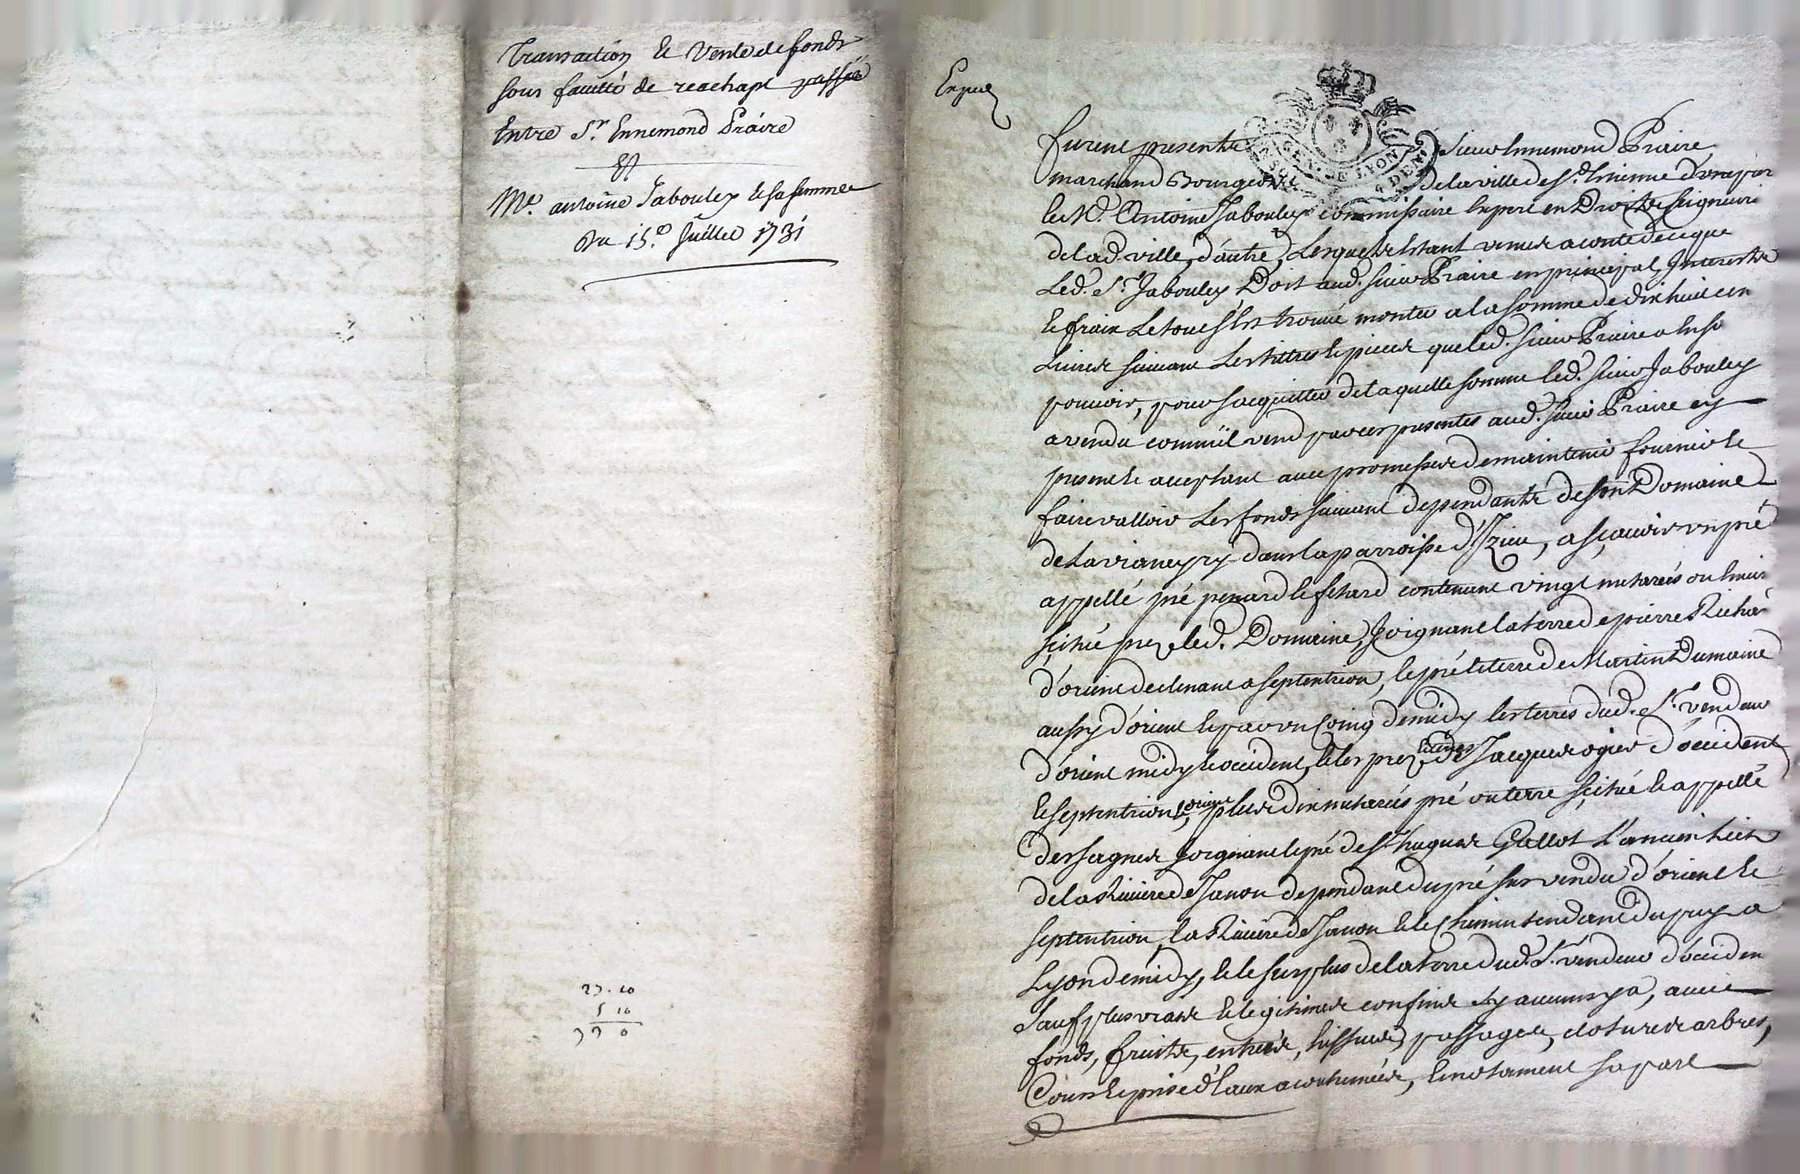 Transaction et Vente de fonds
sous faculté de reachapt passée
Entre Sr. Ennemond Praire
Et
Me. antoine Jabouley et sa femme
Du 15e. Juillet 1731
27. 10
5 10
33 0
GEN. DE LYON
4 DEN
furent presents Sieur Ennemond Praire
marchand Bourgeois de la ville de St. Etienne d'une part
et Me. Antoine Jabouley commissaire Expert en Droits Seigneuri
de lad. ville, d'autre, Lesquels Estant venus a conte de ce que
Led. Sr. Jabouley Doit aud. sieur Praire en principal, Interests
et fraix Le tout s'est trouvé monter a la somme de dix huit cen
Livres suivant Les titres et pieces que led. sieur Praire a En so
pouvoir, pour s'acquitter de laquelle somme led. sieur Jabouley
a vendu comm'il vend par ces presentes aud. sieur Praire icy
present et acceptant avec promesse de maintenir fournir et
faire valloir Les fonds suivant dependants de son Domaine
de Lavianeyry dans la parroisse d'Izieu, a sçavoir un pré
appellé pré contenant vingt metarées ou Environ
scitué prez led. Domaine, Joignant la terre de pierre Richa
d'orient declinant a septentrion, le pré et terre de Martin Dumaine
aussy d'orient et par un coing de midy les terres dud. Sr. vendeur
d'orient midy et occident, et les prez et terres de Jacques ogier d'occident
et septentrion, plus dix metarées pré ou terre scitué et appellé
des sagnes Joignant le pré de St hugues Pallot L'ancien Lict
de la Riviere de Janon dependant du pré sus vendu d'orient et
septentrion, la Riviere de Janon et le Chemin tendant du puy a
Lyon de midy, et le surplus de la terre dud. Sr. vendeur d'occiden
sauf plus vrais et legitimes confins sy aucuns y a, avec
fonds, fruits, entrées, Issues, passages, clotures arbres,
Cours et prise d'Eaux acoutumées, et notament sa part